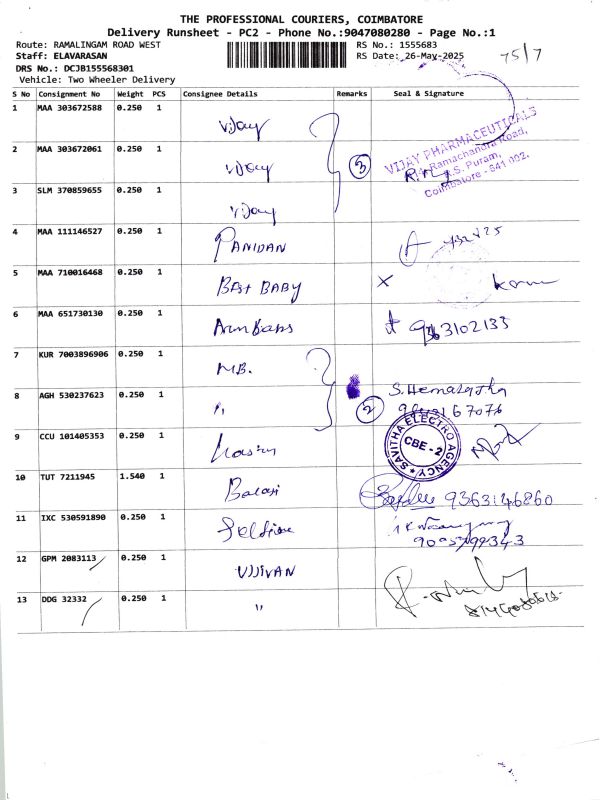 THE PROFESSIONAL COURIERS, COIMBATORE
Delivery Runsheet - PC2 - Phone No.:9047080280 - Page No.:1
Route: RAMALINGAM ROAD WEST
RS No.: 1555683
Staff: ELAVARASAN
RS Date: 26-May-2025
75/7
DRS No.: DCJB155568301
Vehicle: Two Wheeler Delivery
S No Consignment No Weight PCS Consignee Details Remarks Seal & Signature
1 MAA 303672588 0.250 1 Vijay
2 MAA 303672061 0.250 1 Vijay 3
VIJAY PHARMACEUTICALS
Ramachandra Road,
R.S. Puram,
Coimbatore - 641 002.
3 SLM 370859655 0.250 1 Vijay
4 MAA 111146527 0.250 1
5 MAA 710016468 0.250 1 BEST BABY X
6 MAA 651730130 0.250 1
7 KUR 7003896906 0.250 1 M.B.
8 AGH 530237623 0.250 1 " 2 S.Hemalatha
9 CCU 101405353 0.250 1
SAVITHA ELECTRO AGENCY
CBE - 2
10 TUT 7211945 1.540 1 Balaji 9363146860
11 IXC 530591890 0.250 1
12 GPM 2083113 0.250 1 UJJIVAN
13 DDG 32332 0.250 1 "